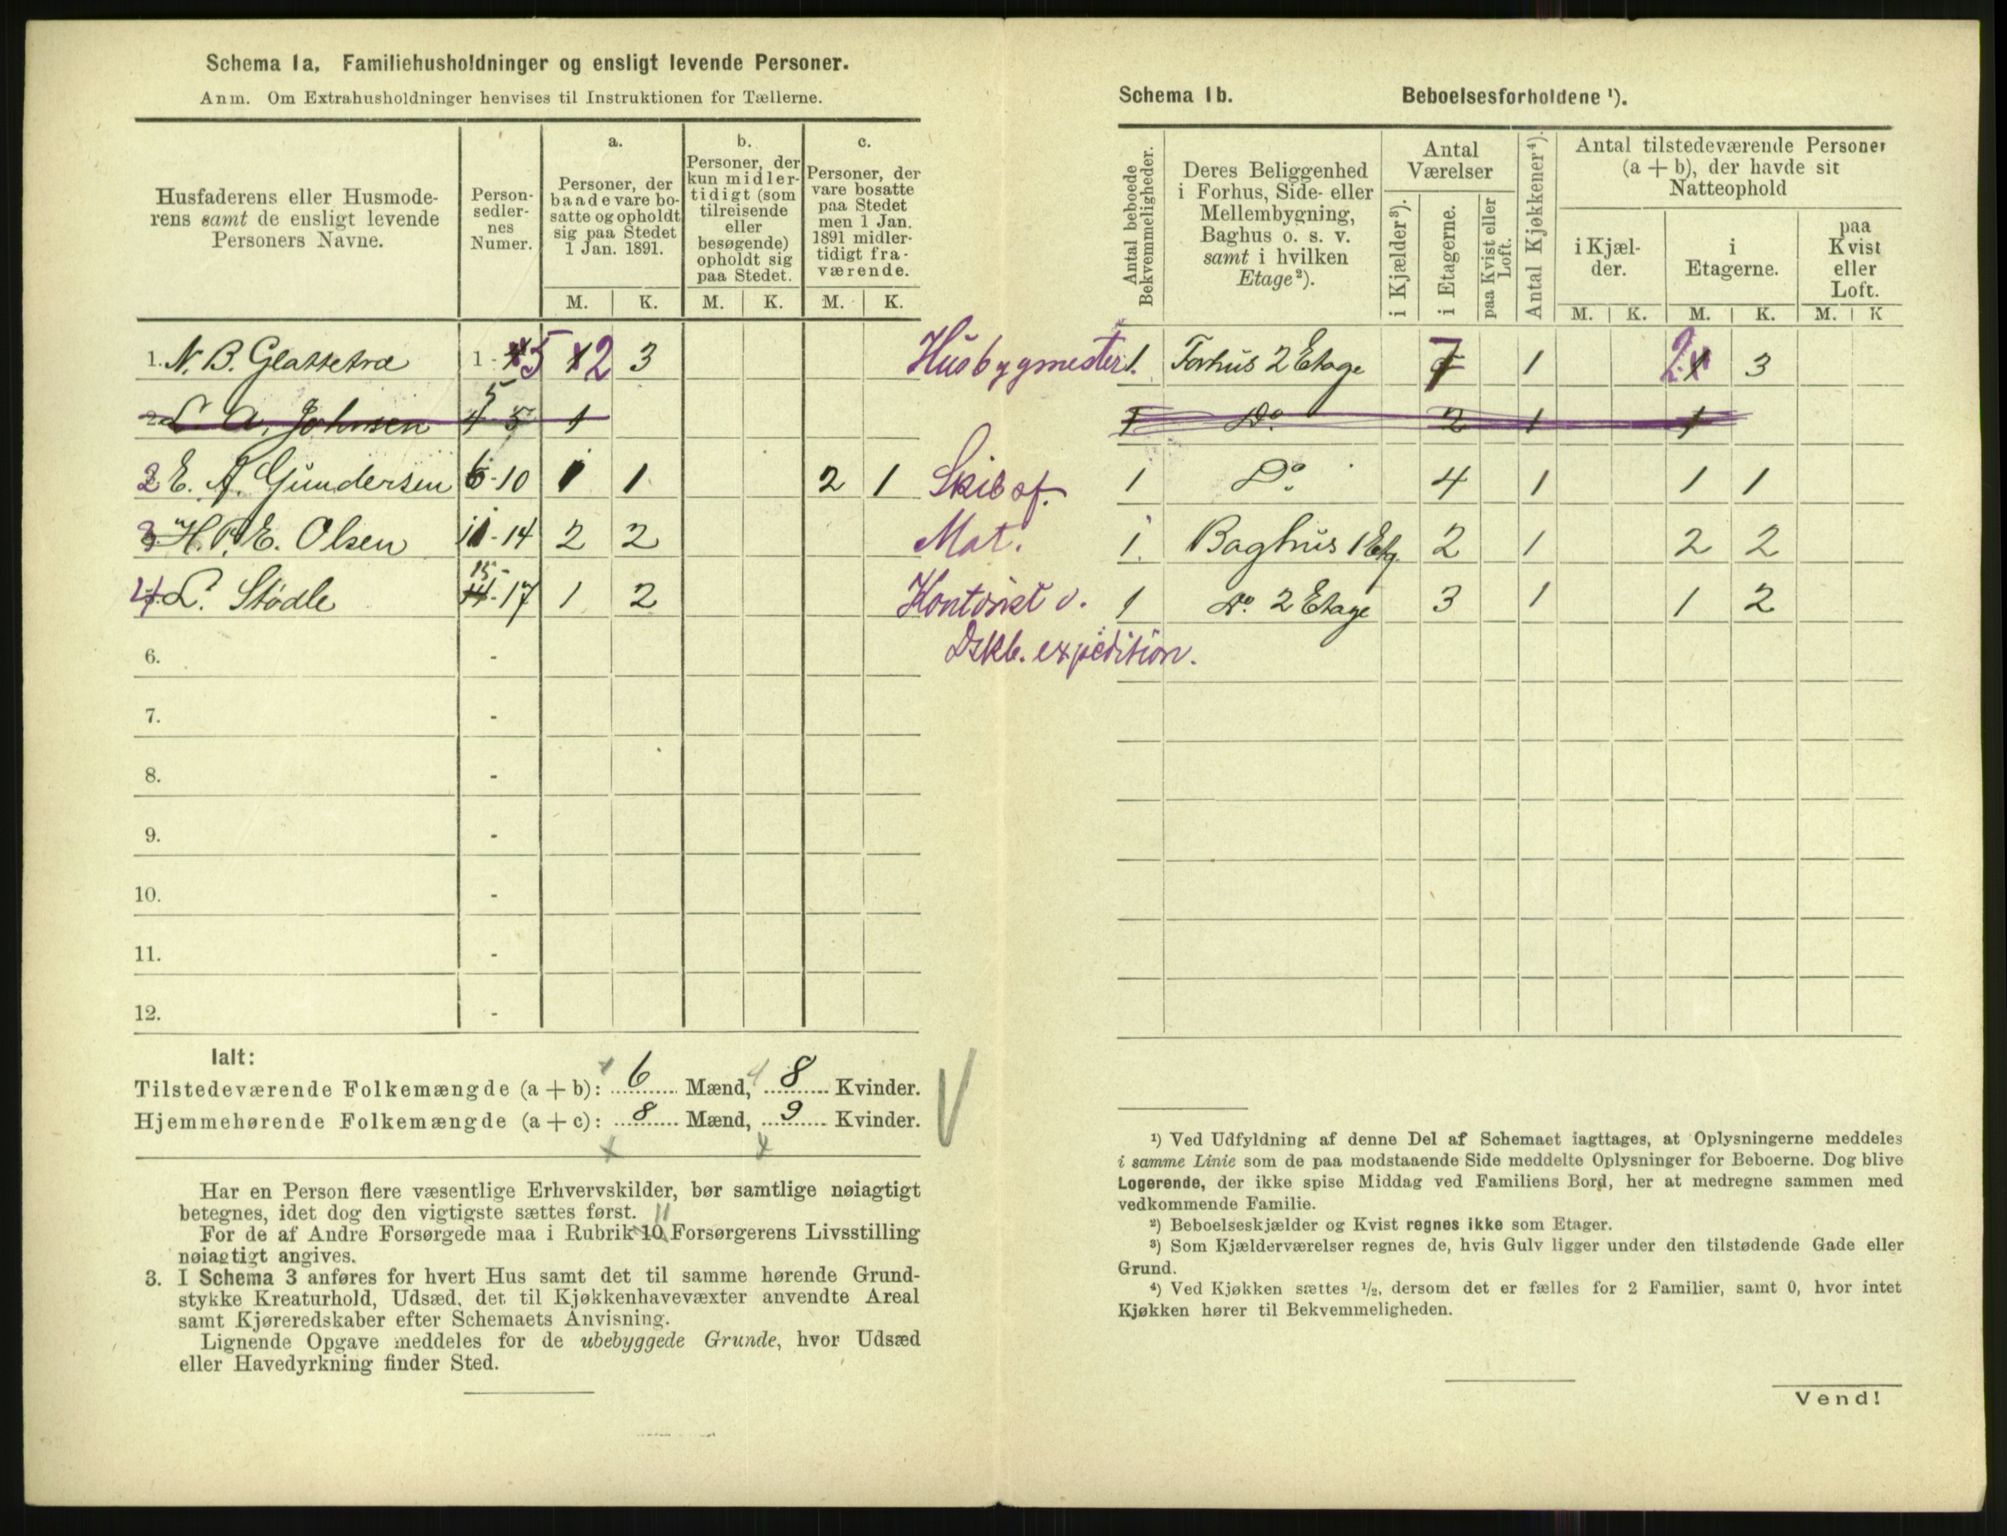 Schema 1a. Familiehusholdninger og ensligt levende Personer.
Anm. Om Extrahusholdninger henvises til Instruktionen for Tællerne.
Husfaderens eller Husmoderens samt de ensligt levende Personers Navne.
Person-sedlernes Numer.
a. Personer, der baade vare bosatte og opholdt sig paa Stedet 1 Jan. 1891.
b. Personer, der kun midlertidigt (som tilreisende eller besøgende) opholdt sig paa Stedet.
c. Personer, der vare bosatte paa Stedet men 1 Jan. 1891 midlertidigt fraværende.
M. K. M. K. M. K.
1. N. B. Glattetræ 1 - 5 2 3 Husbygmester
L. A. Johnsen 5 5 1
2 E. A. Gundersen 6-10 1 1 2 1 Skibsf.
3 H. P. E. Olsen 11-14 2 2 Mat.
4 L. Stødle 15-17 1 2 Kontorist v. Dskb. expedition.
6. -
7. -
8. -
9. -
10. -
11. -
12. -
Ialt:
Tilstedeværende Folkemængde (a + b): 6 Mænd, 8 Kvinder.
Hjemmehørende Folkemængde (a + c): 8 Mænd, 9 Kvinder.
Har en Person flere væsentlige Erhvervskilder, bør samtlige nøiagtigt
betegnes, idet dog den vigtigste sættes først. 11
For de af Andre Forsørgede maa i Rubrik 10 Forsørgerens Livsstilling
nøiagtigt angives.
3. I Schema 3 anføres for hvert Hus samt det til samme hørende Grund-
stykke Kreaturhold, Udsæd, det til Kjøkkenhavevæxter anvendte Areal
samt Kjøreredskaber efter Schemaets Anvisning.
Lignende Opgave meddeles for de ubebyggede Grunde, hvor Udsæd
eller Havedyrkning finder Sted.
Schema 1b. Beboelsesforholdene ¹).
Antal beboede Bekvemmeligheder.
Deres Beliggenhed i Forhus, Side- eller Mellembygning, Baghus o. s. v. samt i hvilken Etage²).
Antal Værelser
i Kjælder³).
i Etagerne.
paa Kvist eller Loft.
Antal Kjøkkener⁴).
Antal tilstedeværende Personer (a + b), der havde sit Natteophold
i Kjælder.
i Etagerne.
paa Kvist eller Loft.
M. K. M. K. M. K
1. Forhus 2 Etage 7 1 2 3
1 Do. 2 1 1
1 Do. 4 1 1 1
1. Baghus 1 Etg. 2 1 2 2
1 Do. 2 Etage 3 1 1 2
¹) Ved Udfyldning af denne Del af Schemaet iagttages, at Oplysningerne meddeles
i samme Linie som de paa modstaaende Side meddelte Oplysninger for Beboerne. Dog blive
Logerende, der ikke spise Middag ved Familiens Bord, her at medregne sammen med
vedkommende Familie.
²) Beboelseskjælder og Kvist regnes ikke som Etager.
³) Som Kjælderværelser regnes de, hvis Gulv ligger under den tilstødende Gade eller
Grund.
⁴) Ved Kjøkken sættes ½, dersom det er fælles for 2 Familier, samt 0, hvor intet
Kjøkken hører til Bekvemmeligheden.
Vend!